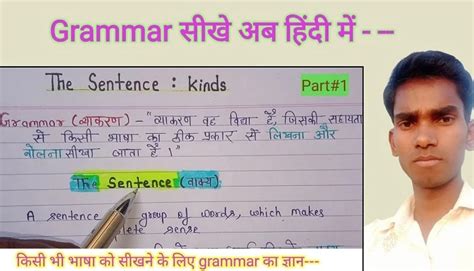 Grammar सीखे अब हिंदी में - --
The Sentence : Kinds
Part#1
Grammar (व्याकरण) – "व्याकरण वह विद्या है, जिसकी सहायता
से किसी भाषा का ठीक प्रकार से लिखना और
बोलना सीखा जाता है ।"
The Sentence (वाक्य)
A sentence group of words, which makes
sense
किसी भी भाषा को सीखने के लिए grammar का ज्ञान---